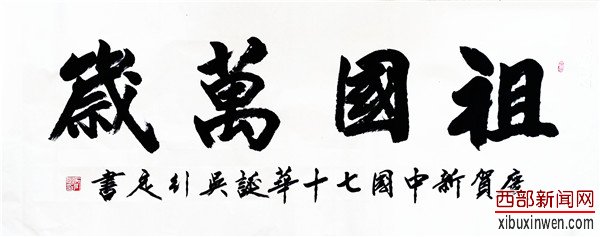 祖國萬歲
慶賀新中國七十華誕吳引定書
西部新闻网
xibuxinwen.com